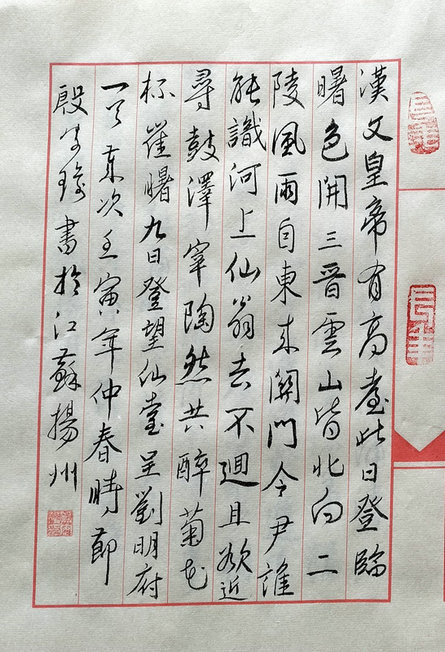 漢文皇帝有高臺此日登臨
曙色開三晉雲山皆北向二
陵風雨自東來關門令尹誰
能識河上仙翁去不迴且欲近
尋鼓澤宰陶然共醉菊花
杯崔曙九日登望仙臺呈劉明府
一首歲次壬寅年仲春時節
殷書於江蘇揚州